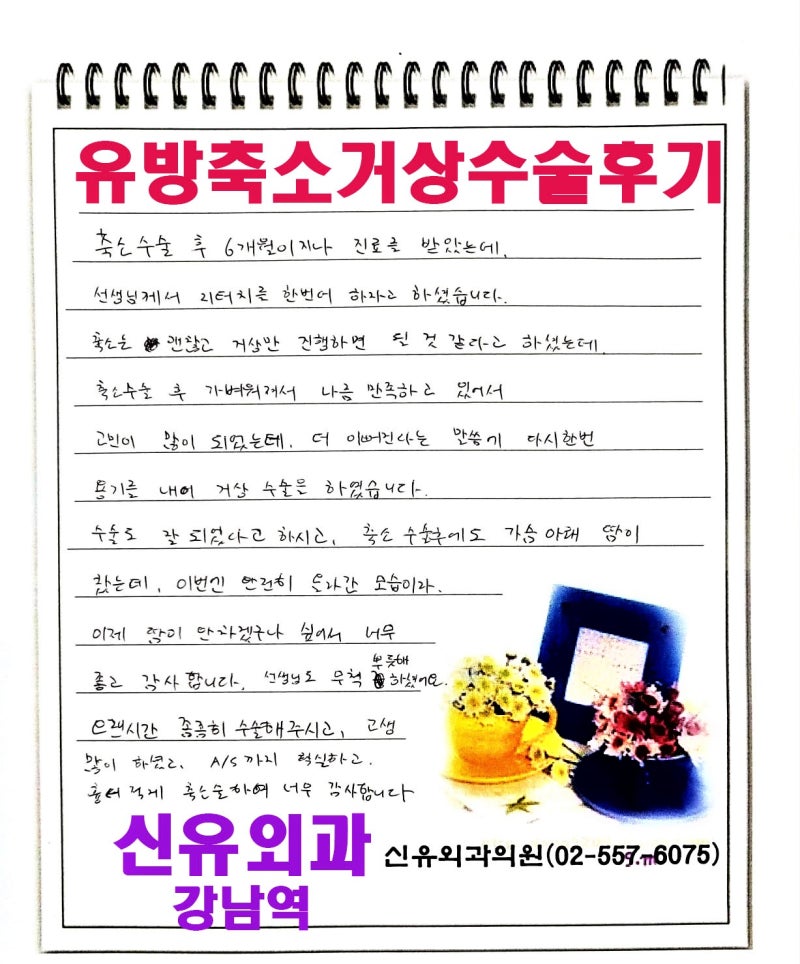 유방축소거상수술후기
축소수술 후 6개월이 지나 진료를 받았는데,
선생님께서 리터치를 한번더 하자고 하셨습니다.
축소는 괜찮고 거상만 진행하면 될 것 같다고 하셨는데
축소수술 후 가벼워져서 나름 만족하고 있어서
고민이 많이 되었는데, 더 이뻐진다는 말씀에 다시한번
용기를 내어 거상 수술을 하였습니다.
수술도 잘 되었다고 하시고, 축소 수술후에도 가슴 아래 땀이
찼는데, 이번엔 완전히 올라간 모습이라.
이제 땀이 안차겠구나 싶어서 너무
좋고 감사합니다. 선생님도 무척 뿌듯해 하셨어요.
오랜시간 꼼꼼히 수술해주시고, 고생
많이 하셨고, A/S까지 확실하고.
흉터 적게 축소술하여 너무 감사합니다
신유외과
신유외과의원(02-557-6075)
강남역